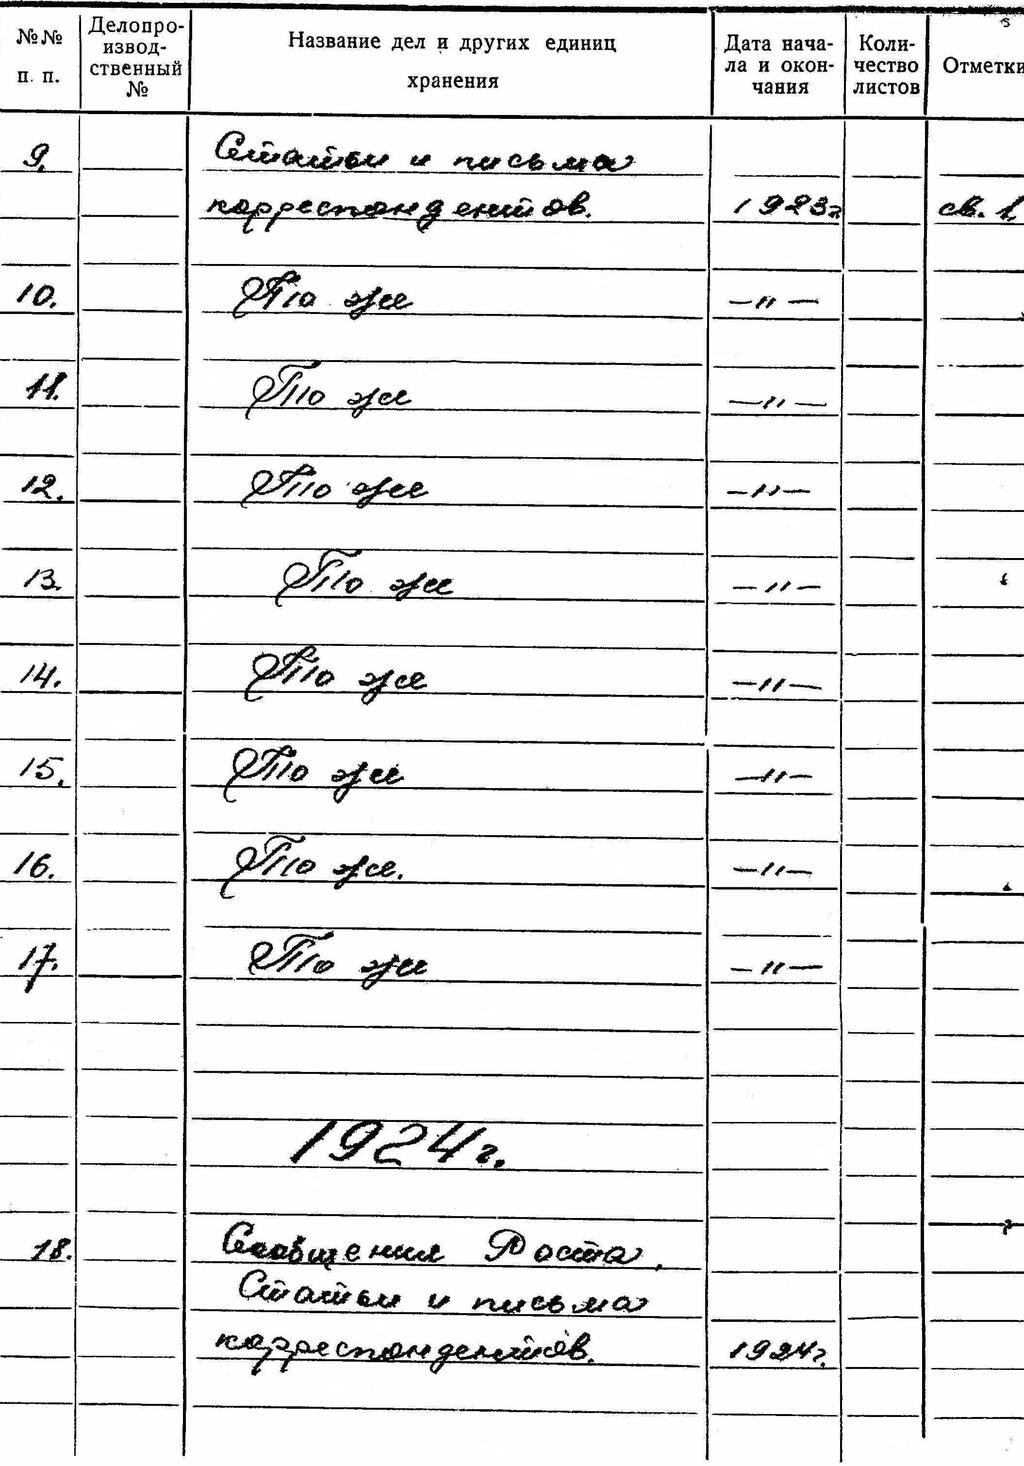 №№ п. п. Делопроизводственный № Название дел и других единиц хранения Дата начала и окончания Количество листов Отметки
9. Статьи и письма
корреспондентов. 1923г св. 1,
10. То же —"—
11. То же —"—
12. То же —"—
13. То же —"—
14. То же —"—
15. То же —"—
16. То же. —"—
17. То же —"—
1924г.
18. Сообщения Роста,
Статьи и письма
корреспондентов. 1924г.